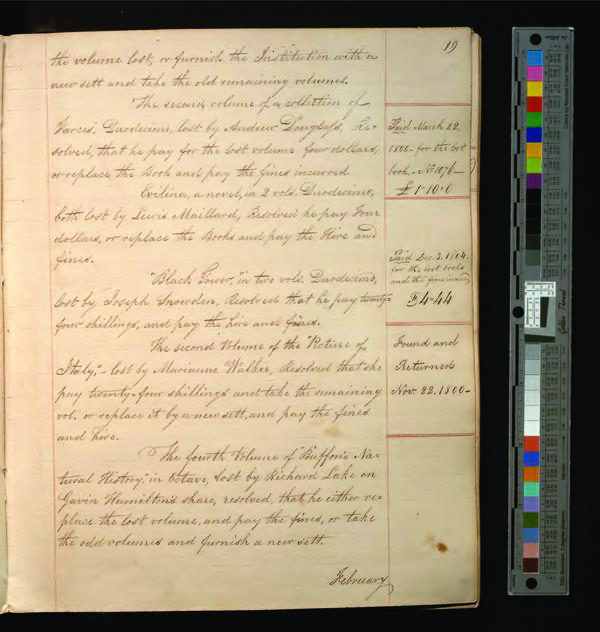 19
the volume lost, or furnish the Institution with a
new sett and take the old remaining volumes.
The second volume of a collection of
Farces, Duodecimo, lost by Andrew Douglass, Re-
solved, that he pay for the lost volume four dollars,
or replace the Book and pay the fines incurred
Paid March 22,
1800. for the lost
book.
£ 1-10-0
Evilina, a novel, in 2 vols. Duodecimo,
both lost by Lewis Maillard, Resolved he pay Four
dollars, or replace the Books and pay the Hire and
fines.
"Black Tower," in two vols. Duodecimo,
lost by Joseph Snowden, Resolved that he pay twenty-
four shillings, and pay the hire and fines.
Paid Dec. 3. 1804.
for the lost books
and the fines
4-44
The second Volume of the "Picture of
Italy," lost by Marianne Walker, Resolved that she
pay twenty-four shillings and take the remaining
vol. or replace it by a new sett, and pay the fines
and hire.
Found and
Returned
Nov. 22. 1800-
The fourth Volume of "Buffon's Na-
tural History," in Octavo, lost by Richard Lake on
Gavin Hamilton's share, resolved, that he either re-
place the lost volume, and pay the fines, or take
the odd volumes and furnish a new sett.
February